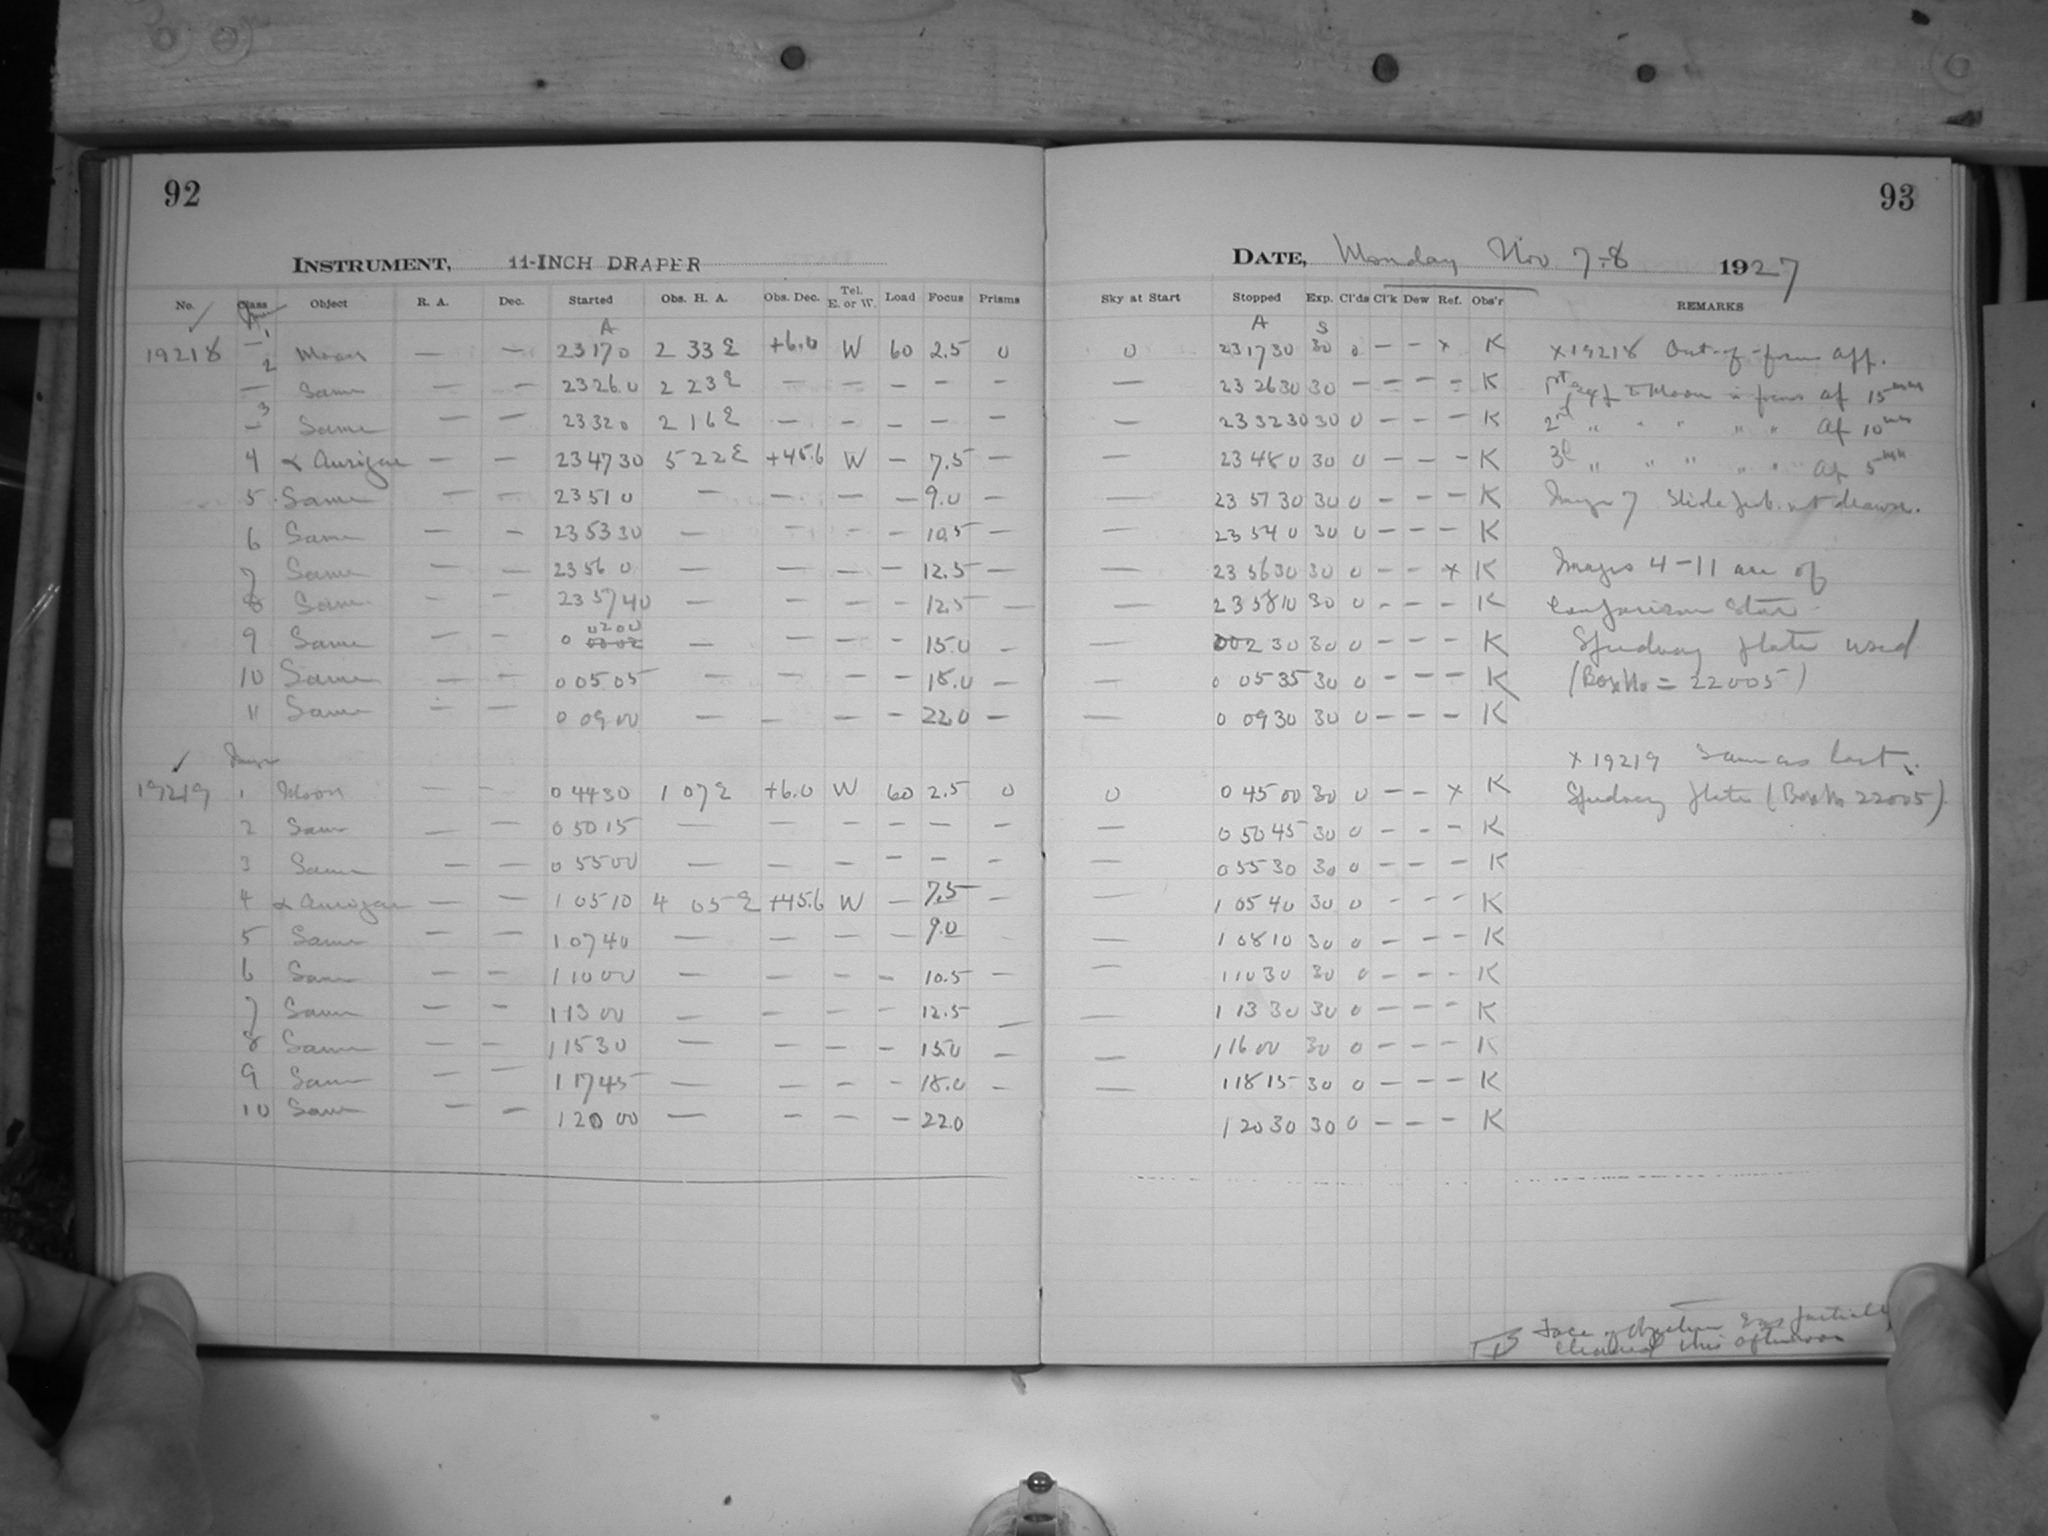 92
93
INSTRUMENT, 11-INCH DRAPER
DATE, Monday Nov. 7-8 1927
No. Class Object R. A. Dec. Started Obs. H. A. Obs. Dec. Tel. E. or W. Load Focus Prisms Sky at Start Stopped Exp. Cl'ds Cl'k Dew Ref. Obs'r REMARKS
A A S
19218 — 1 Moon — — 23 17 0 2 33 E +6.0 W 60 2.5 0 0 23 17 30 30 0 — — x K x 19218 Out-of-focus app.
— 2 Same — — 23 26 0 2 23 E — — — — — — 23 26 30 30 — — — — K 1st exp Moon in focus at 15 mm
— 3 Same — — 23 32 0 2 16 E — — — — — — 23 32 30 30 0 — — — K 2nd " " " " " At 10 mm
4 α Aurigae — — 23 47 30 5 22 E +45.6 W — 7.5 — — 23 48 0 30 0 — — — K 3d " " " " " At 5 mm
5 Same — — 23 51 0 — — — — 9.0 — — 23 51 30 30 0 — — — K Image 7 Slide not drawn.
6 Same — — 23 53 30 — — — — 10.5 — — 23 54 0 30 0 — — — K
7 Same — — 23 56 0 — — — — 12.5 — — 23 56 30 30 0 — — x K Images 4-11 are of
8 Same — — 23 57 40 — — — — 12.5 — — 23 58 10 30 0 — — — K Comparison Stars
9 Same — — 0 02 00 — — — — 15.0 — — 0 02 30 30 0 — — — K Speedway plate used
10 Same — — 0 05 05 — — — — 18.0 — — 0 05 35 30 0 — — — K (Box No = 22005)
11 Same — — 0 09 00 — — — — 22.0 — — 0 09 30 30 0 — — — K
Image x 19219 Same as last.
19219 1 Moon — — 0 44 30 1 07 E +6.0 W 60 2.5 0 0 0 45 00 30 0 — — x K Speedway plate (Box No 22005)
2 Same — — 0 50 15 — — — — — — — 0 50 45 30 0 — — — K
3 Same — — 0 55 00 — — — — — — — 0 55 30 30 0 — — — K
4 α Aurigae — — 1 05 10 4 05 E +45.6 W — 7.5 — — 1 05 40 30 0 — — — K
5 Same — — 1 07 40 — — — — 9.0 — — 1 08 10 30 0 — — — K
6 Same — — 1 10 00 — — — — 10.5 — — 1 10 30 30 0 — — — K
7 Same — — 1 13 00 — — — — 12.5 — — 1 13 30 30 0 — — — K
8 Same — — 1 15 30 — — — — 15.0 — — 1 16 00 30 0 — — — K
9 Same — — 1 17 45 — — — — 18.0 — — 1 18 15 30 0 — — — K
10 Same — — 1 20 00 — — — — 22.0 1 20 30 30 0 — — — K
Face of objective was partially
cleaned this afternoon